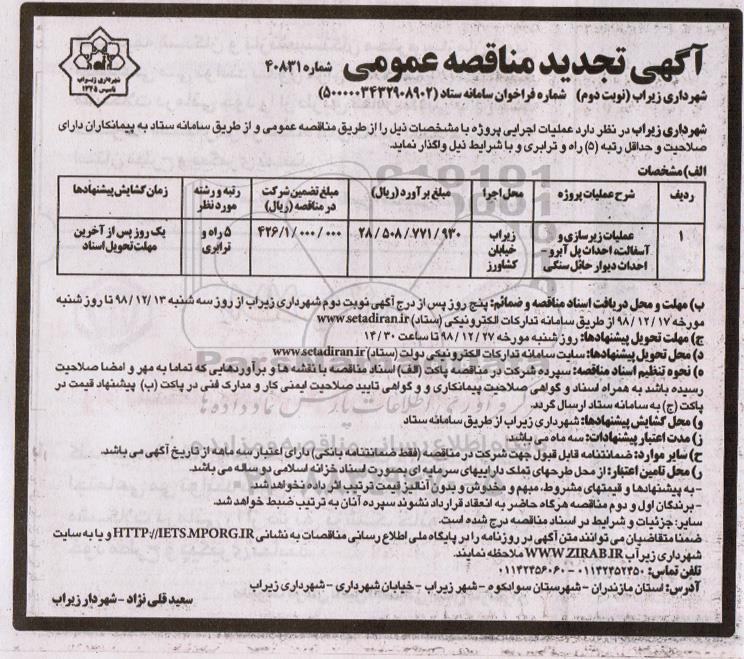 آگهی تجدید مناقصه عمومی شماره ۴۰۸۳۱
شهرداری زیراب
تاسیس ۱۳۳۵
شهرداری زیراب (نوبت دوم) شماره فراخوان سامانه ستاد (۵۰۰۰۰۰۳۴۳۲۹۰۸۹۰۲)
شهرداری زیراب در نظر دارد عملیات اجرایی پروژه با مشخصات ذیل را از طریق مناقصه عمومی و از طریق سامانه ستاد به پیمانکاران دارای
صلاحیت و حداقل رتبه (۵) راه و ترابری و با شرایط ذیل واگذار نماید.
الف) مشخصات
ردیف شرح عملیات پروژه محل اجرا مبلغ برآورد (ریال) مبلغ تضمین شرکت در مناقصه (ریال) رتبه و رشته مورد نظر زمان گشایش پیشنهادها
۱ عملیات زیرسازی و آسفالت، احداث پل آبرو - احداث دیوار حائل سنگی زیراب خیابان کشاورز ۲۸/۵۰۸/۷۷۱/۹۳۰ ۴۲۶/۱/۰۰۰/۰۰۰ ۵ راه و ترابری یک روز پس از آخرین مهلت تحویل اسناد
ب) مهلت و محل دریافت اسناد مناقصه و ضمائم: پنج روز پس از درج آگهی نوبت دوم شهرداری زیراب از روز سه شنبه ۹۸/۱۲/۱۳ تا روز شنبه
مورخه ۹۸/۱۲/۱۷ از طریق سامانه تدارکات الکترونیکی (ستاد) www.setadiran.ir
ج) مهلت تحویل پیشنهادها: روز شنبه مورخه ۹۸/۱۲/۲۷ تا ساعت ۱۴/۳۰
د) محل تحویل پیشنهادها: سایت سامانه تدارکات الکترونیکی دولت (ستاد) www.setadiran.ir
ه) نحوه تنظیم اسناد مناقصه: سپرده شرکت در مناقصه پاکت (الف) اسناد مناقصه با نقشه ها و برآوردهایی که تماما به مهر و امضا صلاحیت
رسیده باشد به همراه اسناد و گواهی صلاحیت پیمانکاری و و گواهی تایید صلاحیت ایمنی کار و مدارک فنی در پاکت (ب) پیشنهاد قیمت در
پاکت (ج) به سامانه ستاد ارسال گردد.
و) محل گشایش پیشنهادها: شهرداری زیراب از طریق سامانه ستاد
ز) مدت اعتبار پیشنهادات: سه ماه می باشد.
ح) سایر موارد: ضمانتنامه قابل قبول جهت شرکت در مناقصه (فقط ضمانتنامه بانکی) دارای اعتبار سه ماهه از تاریخ آگهی می باشد.
ر) محل تامین اعتبار: از محل طرحهای تملک داراییهای سرمایه ای بصورت اسناد خزانه اسلامی دو ساله می باشد.
- به پیشنهادها و قیمتهای مشروط، مبهم و مخدوش و بدون آنالیز قیمت ترتیب اثر داده نخواهد شد.
- برندگان اول و دوم مناقصه هرگاه حاضر به انعقاد قرارداد نشوند سپرده آنان به ترتیب ضبط خواهد شد.
سایر: جزئیات و شرایط در اسناد مناقصه درج شده است.
ضمنا متقاضیان می توانند متن آگهی در روزنامه را در پایگاه ملی اطلاع رسانی مناقصات به نشانی HTTP://IETS.MPORG.IR و یا به سایت
شهرداری زیرآب WWW.ZIRAB.IR ملاحظه نمایند.
تلفن تماس: ۰۱۱۴۲۴۵۲۴۵۰ - ۰۱۱۴۲۴۵۶۰۶۰
آدرس: استان مازندران - شهرستان سوادکوه - شهر زیراب - خیابان شهرداری - شهرداری زیراب
سعید قلی نژاد - شهردار زیراب